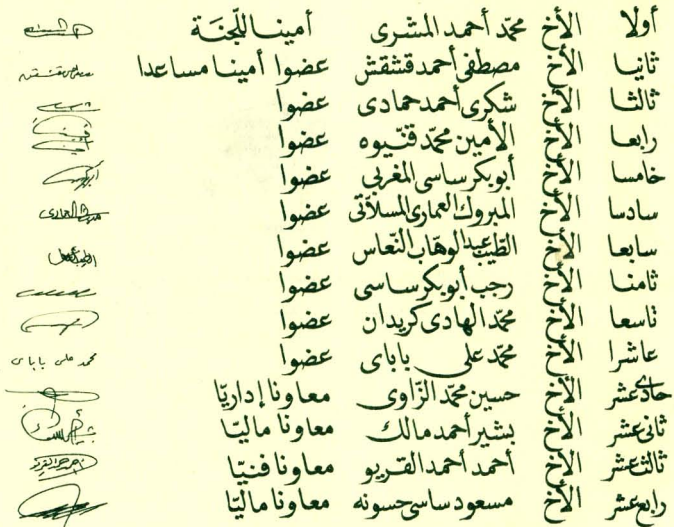 أولا الأخ محمّد أحمد المشرى أمينا للّجنَة
ثانيا الأخ مصطفى أحمد قشقش عضوا أمينا مساعدا
ثالثا الأخ شكرى أحمد حمادى عضوا
رابعا الأخ الأمين محمّد قنّيوه عضوا
خامسا الأخ أبوبكر ساسى المغربي عضوا
سادسا الأخ المبروك العمارى المسلاتى عضوا
سابعا الأخ الطيّب عبد الوهّاب النّعاس عضوا
ثامنا الأخ رجب أبوبكر ساسى عضوا
تاسعا الأخ محمّد الهادى كريدان عضوا
عاشرا الأخ محمّد على باباى عضوا محمد على باباى
حادى عشر الأخ حسين محمّد الزّاوى معاونا إداريّا
ثانى عشر الأخ بشير أحمد مالك معاونا ماليّا
ثالث عشر الأخ أحمد أحمد القريو معاونا فنيّا
رابع عشر الأخ مسعود ساسى حسونه معاونا ماليّا